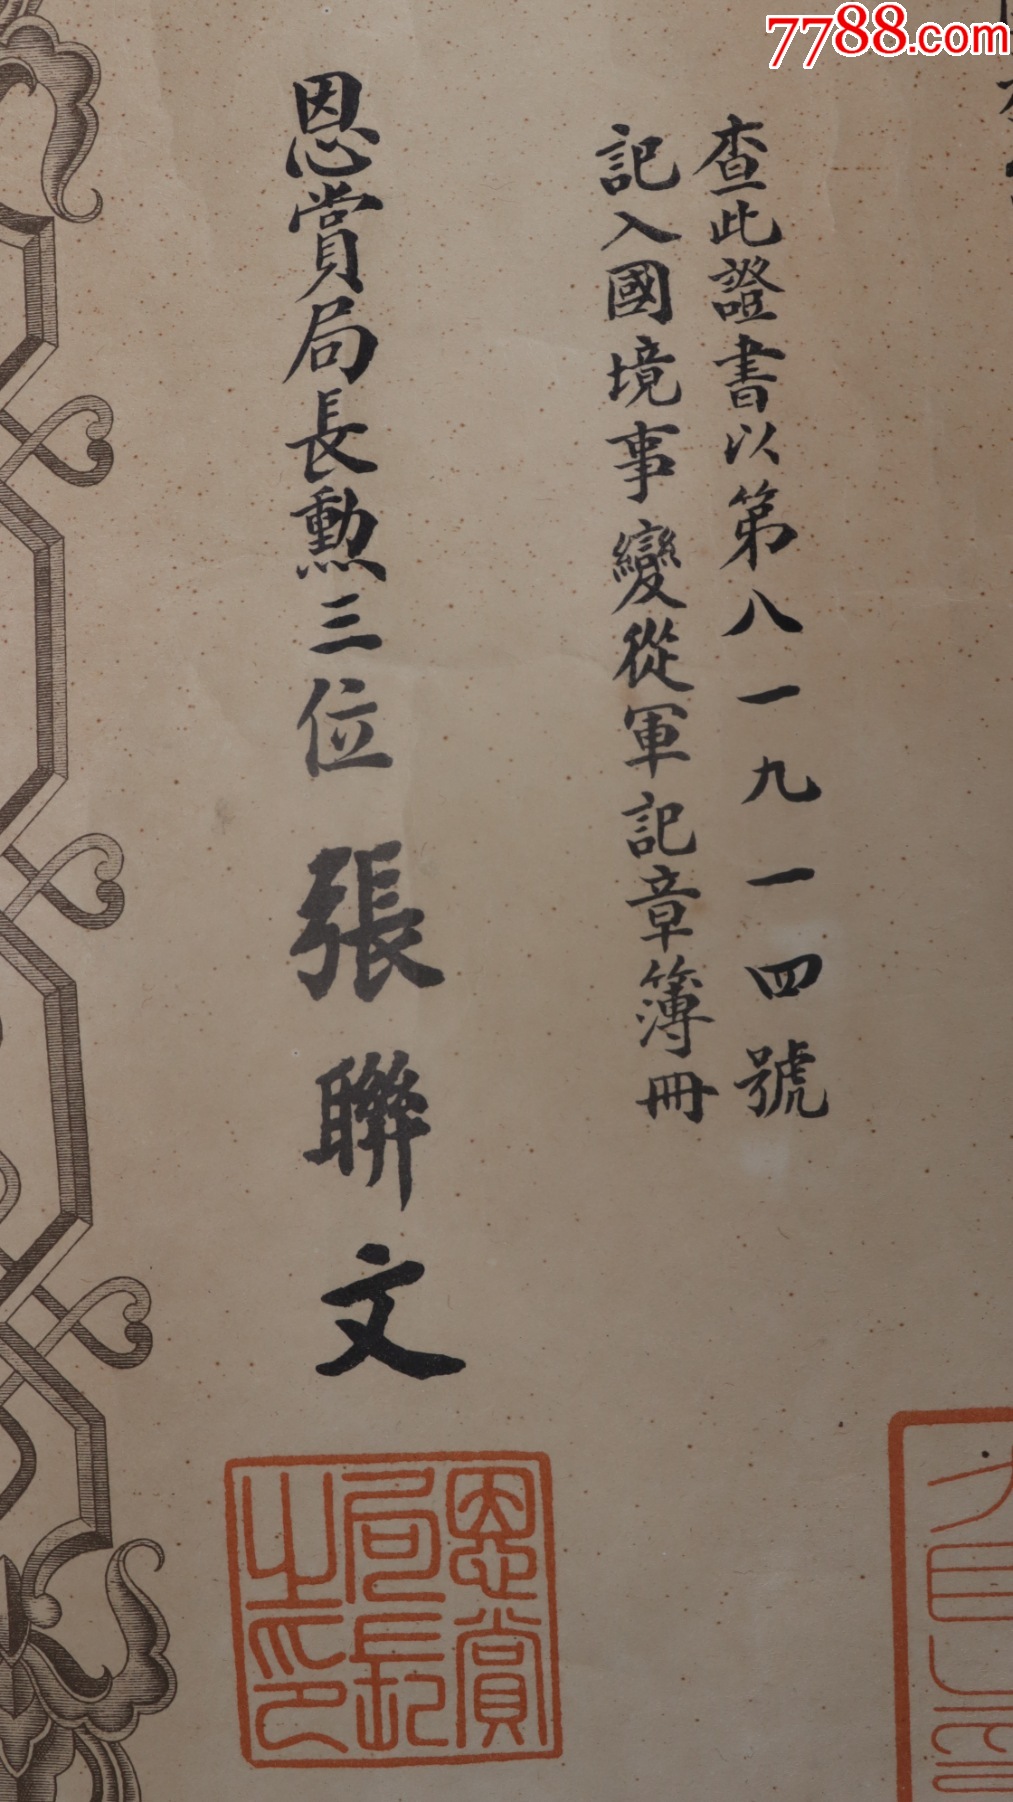 7788.com
查此證書以第八一九一四號
記入國境事變從軍記章簿冊
恩賞局長勲三位 張聯文
恩賞
局長
之印